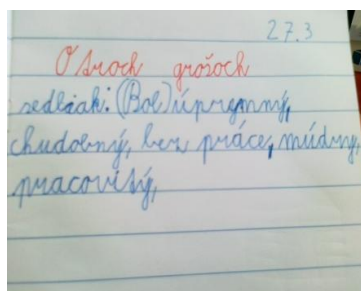 27.3
O troch grošoch
sedliak: (Bol) úprymný,
chudobný, bez práce, múdry,
pracovitý,